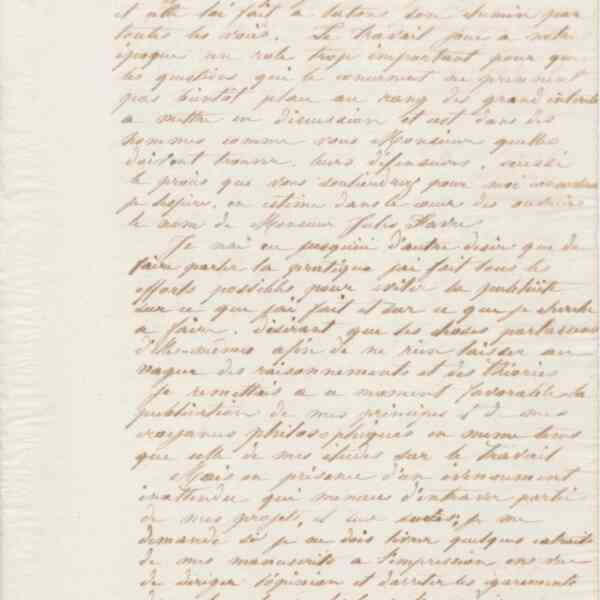 et elle lui fait à tatons son chemin par
toutes les voies. Le travail joue a notre
époque un role trop important pour que
les questions qui le concernent ne prennent
pas bientôt place au rang des grand interets
a mettre en discussion et c'est dans des
hommes comme vous Monsieur quelles
doivent trouver leurs défenseurs, aussi
le procès que vous soutiendrez pour moi
je l'espère, en estime dans le cœur des ouvriers
le nom de Monsieur Jules Favre
Je n'ai eu jusquici d'autre desir que de
faire parler la pratique j'ai fait tous les
efforts possibles pour eviter la publicité
sur ce que j'ai fait et sur ce que je cherche
a faire, désirant que les choses parlassent
d'elles-mêmes afin de ne rien laisser au
vague des raisonnements et des théories
Je remettais a un moment favorable la
publication de mes principes et de mes
croyances philosophiques en meme tems
que celle de mes études sur le travail
Mais en présence d'un évènement
inattendu qui menace d'entraver partie
de mes projets, et leur succès, je me
demande si je ne dois livrer quelques extraits
de mes manuscrits a l'impression en vue
de diriger l'opinion et d'arreter les égarements